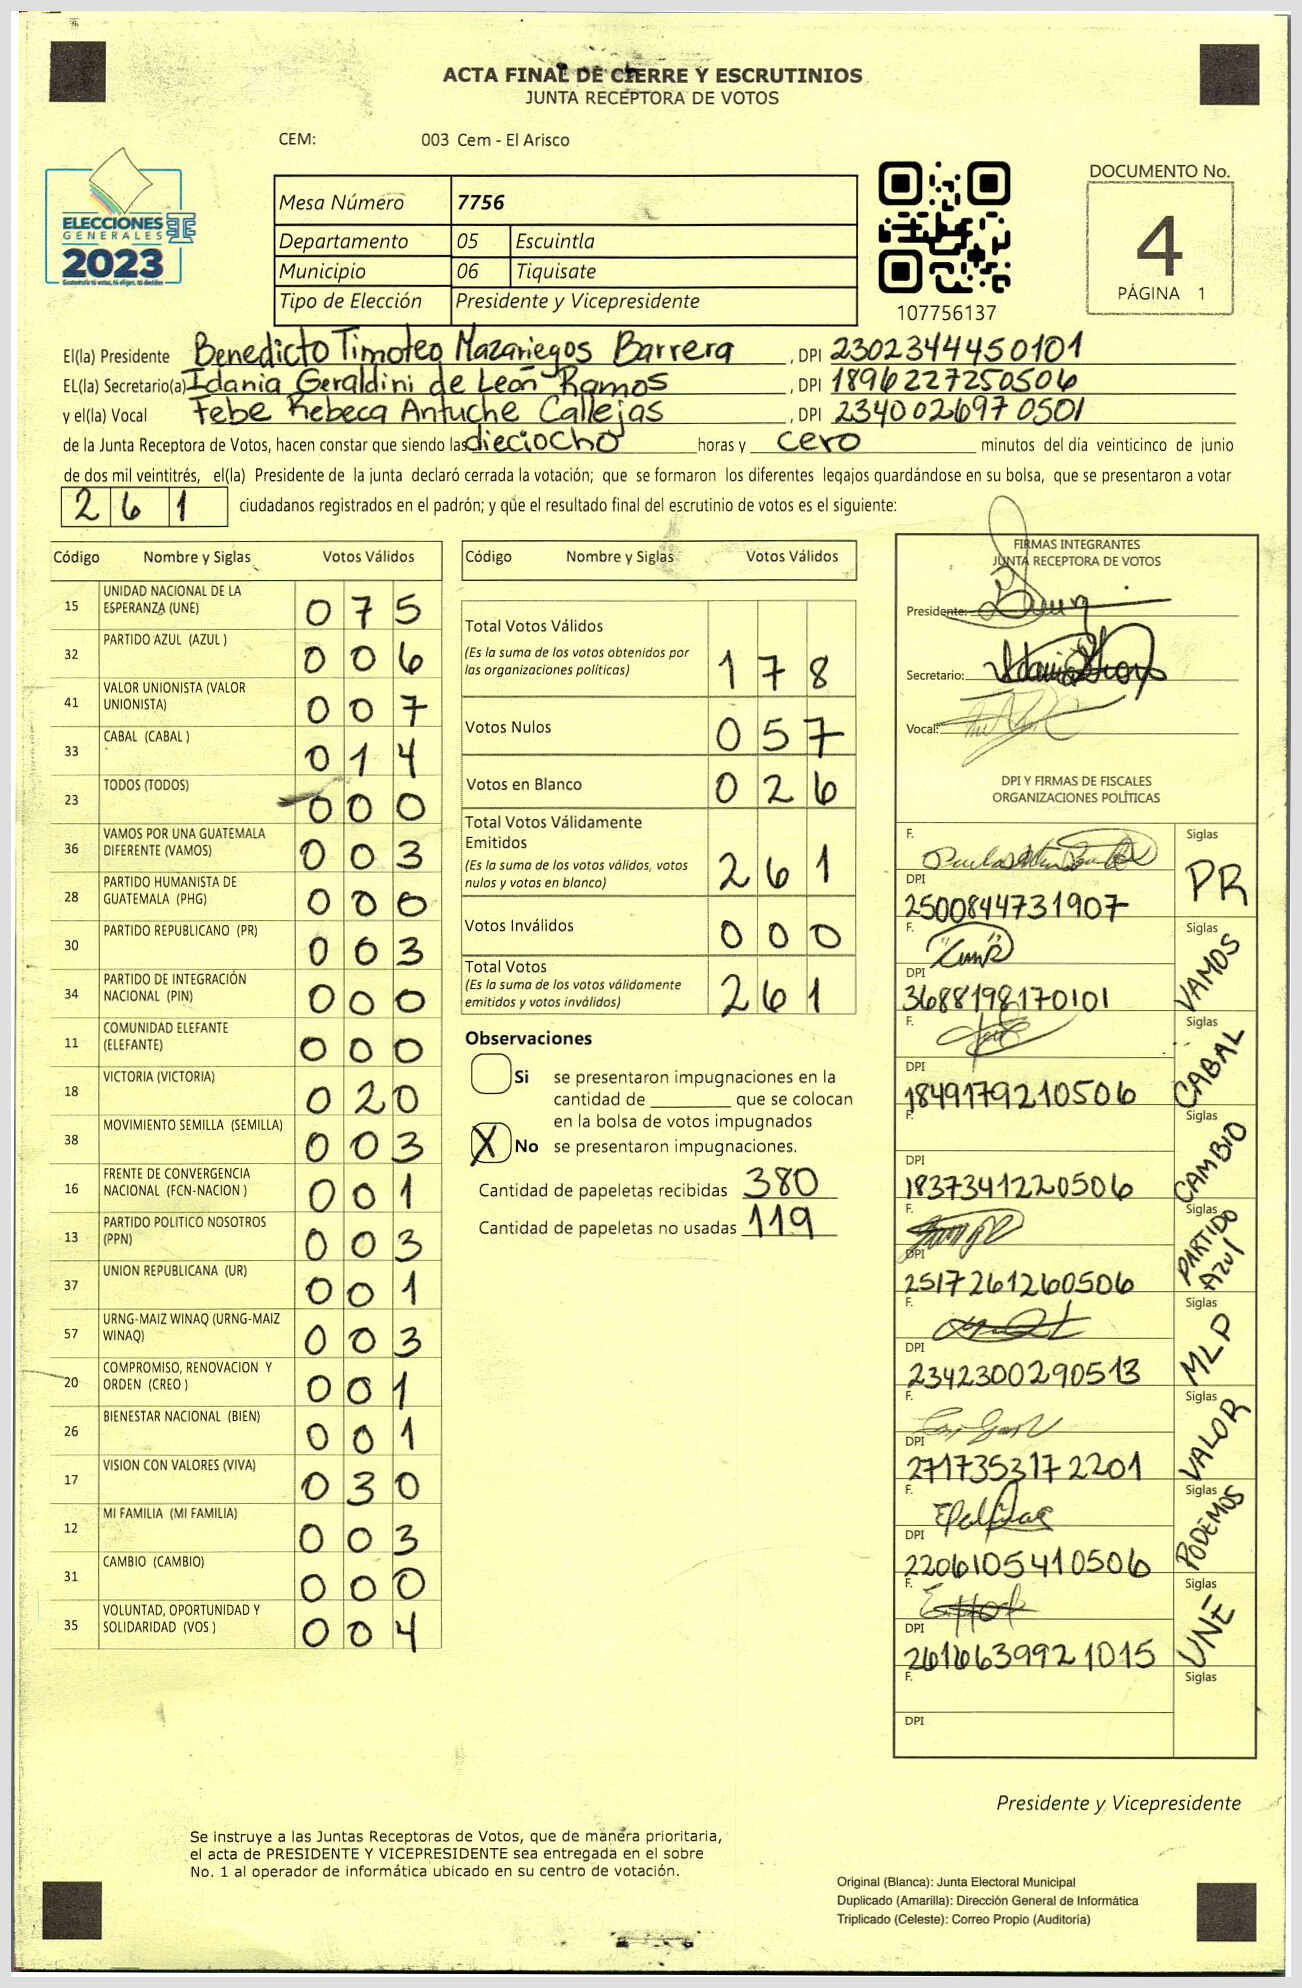 ACTA FINAL DE CIERRE Y ESCRUTINIOS
JUNTA RECEPTORA DE VOTOS
CEM: 003 Cem - El Arisco
ELECCIONES
GENERALES
2023
Mesa Número 7756
Departamento 05 Escuintla
Municipio 06 Tiquisate
Tipo de Elección Presidente y Vicepresidente
107756137
DOCUMENTO No.
4
PÁGINA 1
El(la) Presidente Benedicto Timoteo Mazariegos Barrera, DPI 2302344450101
EL(la) Secretario(a) Idania Geraldini de León Ramos, DPI 1896227250506
y el(la) Vocal Febe Rebeca Antuche Callejas, DPI 2340026970501
de la Junta Receptora de Votos, hacen constar que siendo las dieciocho horas y cero minutos del día veinticinco de junio
de dos mil veintitrés, el(la) Presidente de la junta declaró cerrada la votación; que se formaron los diferentes legajos guardándose en su bolsa, que se presentaron a votar
261 ciudadanos registrados en el padrón; y que el resultado final del escrutinio de votos es el siguiente:
Código Nombre y Siglas Votos Válidos
15 UNIDAD NACIONAL DE LA ESPERANZA (UNE) 075
32 PARTIDO AZUL (AZUL ) 006
41 VALOR UNIONISTA (VALOR UNIONISTA) 007
33 CABAL (CABAL ) 014
23 TODOS (TODOS) 000
36 VAMOS POR UNA GUATEMALA DIFERENTE (VAMOS) 003
28 PARTIDO HUMANISTA DE GUATEMALA (PHG) 000
30 PARTIDO REPUBLICANO (PR) 003
34 PARTIDO DE INTEGRACIÓN NACIONAL (PIN) 000
11 COMUNIDAD ELEFANTE (ELEFANTE) 000
18 VICTORIA (VICTORIA) 020
38 MOVIMIENTO SEMILLA (SEMILLA) 003
16 FRENTE DE CONVERGENCIA NACIONAL (FCN-NACION ) 001
13 PARTIDO POLITICO NOSOTROS (PPN) 003
37 UNION REPUBLICANA (UR) 001
57 URNG-MAIZ WINAQ (URNG-MAIZ WINAQ) 003
20 COMPROMISO, RENOVACION Y ORDEN (CREO ) 001
26 BIENESTAR NACIONAL (BIEN) 001
17 VISION CON VALORES (VIVA) 030
12 MI FAMILIA (MI FAMILIA) 003
31 CAMBIO (CAMBIO) 000
35 VOLUNTAD, OPORTUNIDAD Y SOLIDARIDAD (VOS ) 004
Código Nombre y Siglas Votos Válidos
Total Votos Válidos
(Es la suma de los votos obtenidos por las organizaciones politicas) 178
Votos Nulos 057
Votos en Blanco 026
Total Votos Válidamente Emitidos
(Es la suma de los votos válidos, votos nulos y votos en blanco) 261
Votos Inválidos 000
Total Votos
(Es la suma de los votos válidamente emitidos y votos inválidos) 261
Observaciones
Si se presentaron impugnaciones en la
cantidad de ________ que se colocan
en la bolsa de votos impugnados
X No se presentaron impugnaciones.
Cantidad de papeletas recibidas 380
Cantidad de papeletas no usadas 119
FIRMAS INTEGRANTES
JUNTA RECEPTORA DE VOTOS
Presidente:
Secretario:
Vocal:
DPI Y FIRMAS DE FISCALES
ORGANIZACIONES POLÍTICAS
F. Siglas PR
DPI 2500844731907
F. Siglas VAMOS
DPI 3688198170101
F. Siglas CABAL
DPI 1849179210506
F. Siglas CAMBIO
DPI 1837341220506
F. Siglas PARTIDO AZUL
DPI 2517261260506
F. Siglas MLP
DPI 2342300290513
F. Siglas VALOR
DPI 2717353172201
F. Siglas PODEMOS
DPI 2206105410506
F. Siglas UNE
DPI 2616639921015
F. Siglas
DPI
Presidente y Vicepresidente
Se instruye a las Juntas Receptoras de Votos, que de manera prioritaria,
el acta de PRESIDENTE Y VICEPRESIDENTE sea entregada en el sobre
No. 1 al operador de informática ubicado en su centro de votación.
Original (Blanca): Junta Electoral Municipal
Duplicado (Amarilla): Dirección General de Informática
Triplicado (Celeste): Correo Propio (Auditoría)